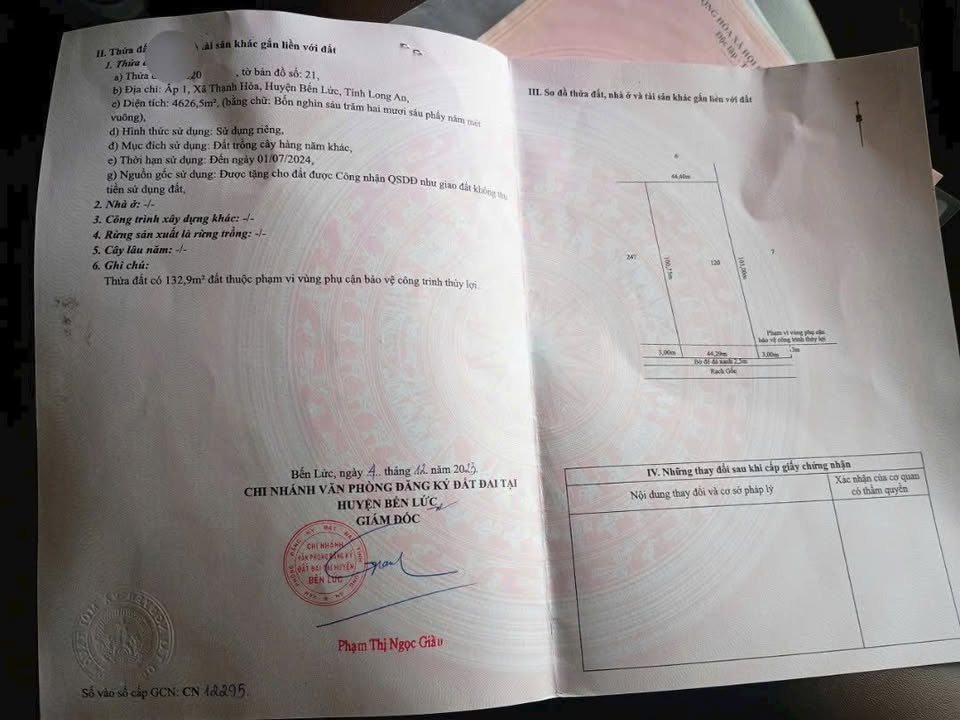 II. Thửa đ tài sản khác gắn liền với đất
1. Thửa
a) Thửa 20 , tờ bản đồ số: 21,
b) Địa chỉ: Ấp 1, Xã Thạnh Hòa, Huyện Bến Lức, Tỉnh Long An,
c) Diện tích: 4626,5m², (bằng chữ: Bốn nghìn sáu trăm hai mươi sáu phẩy năm mét
vuông),
d) Hình thức sử dụng: Sử dụng riêng,
đ) Mục đích sử dụng: Đất trồng cây hàng năm khác,
e) Thời hạn sử dụng: Đến ngày 01/07/2024,
g) Nguồn gốc sử dụng: Được tặng cho đất được Công nhận QSDĐ như giao đất không thu
tiền sử dụng đất,
2. Nhà ở: -/-
3. Công trình xây dựng khác: -/-
4. Rừng sản xuất là rừng trồng: -/-
5. Cây lâu năm: -/-
6. Ghi chú:
Thửa đất có 132,9m² đất thuộc phạm vi vùng phụ cận bảo vệ công trình thủy lợi
Bến Lức, ngày 4.. tháng 12 năm 2023
CHI NHÁNH VĂN PHÒNG ĐĂNG KÝ ĐẤT ĐAI TẠI
HUYỆN BẾN LỨC
GIÁM ĐỐC
CHI NHÁNH
VĂN PHÒNG ĐĂNG KÝ
ĐẤT ĐAI TẠI HUYỆN
BẾN LỨC
Phạm Thị Ngọc Giàu
Số vào sổ cấp GCN: CN 12295.
III. Sơ đồ thửa đất, nhà ở và tài sản khác gắn liền với đất
6
44,48m
247
100,75m
120
101,00m
7
Phạm vi vùng phụ cận
bảo vệ công trình thủy lợi
3,00m
44,29m
3,00m
3m
Bờ đê đá xanh 2,5m
Rạch Gốc
IV. Những thay đổi sau khi cấp giấy chứng nhận
Nội dung thay đổi và cơ sở pháp lý
Xác nhận của cơ quan
có thẩm quyền